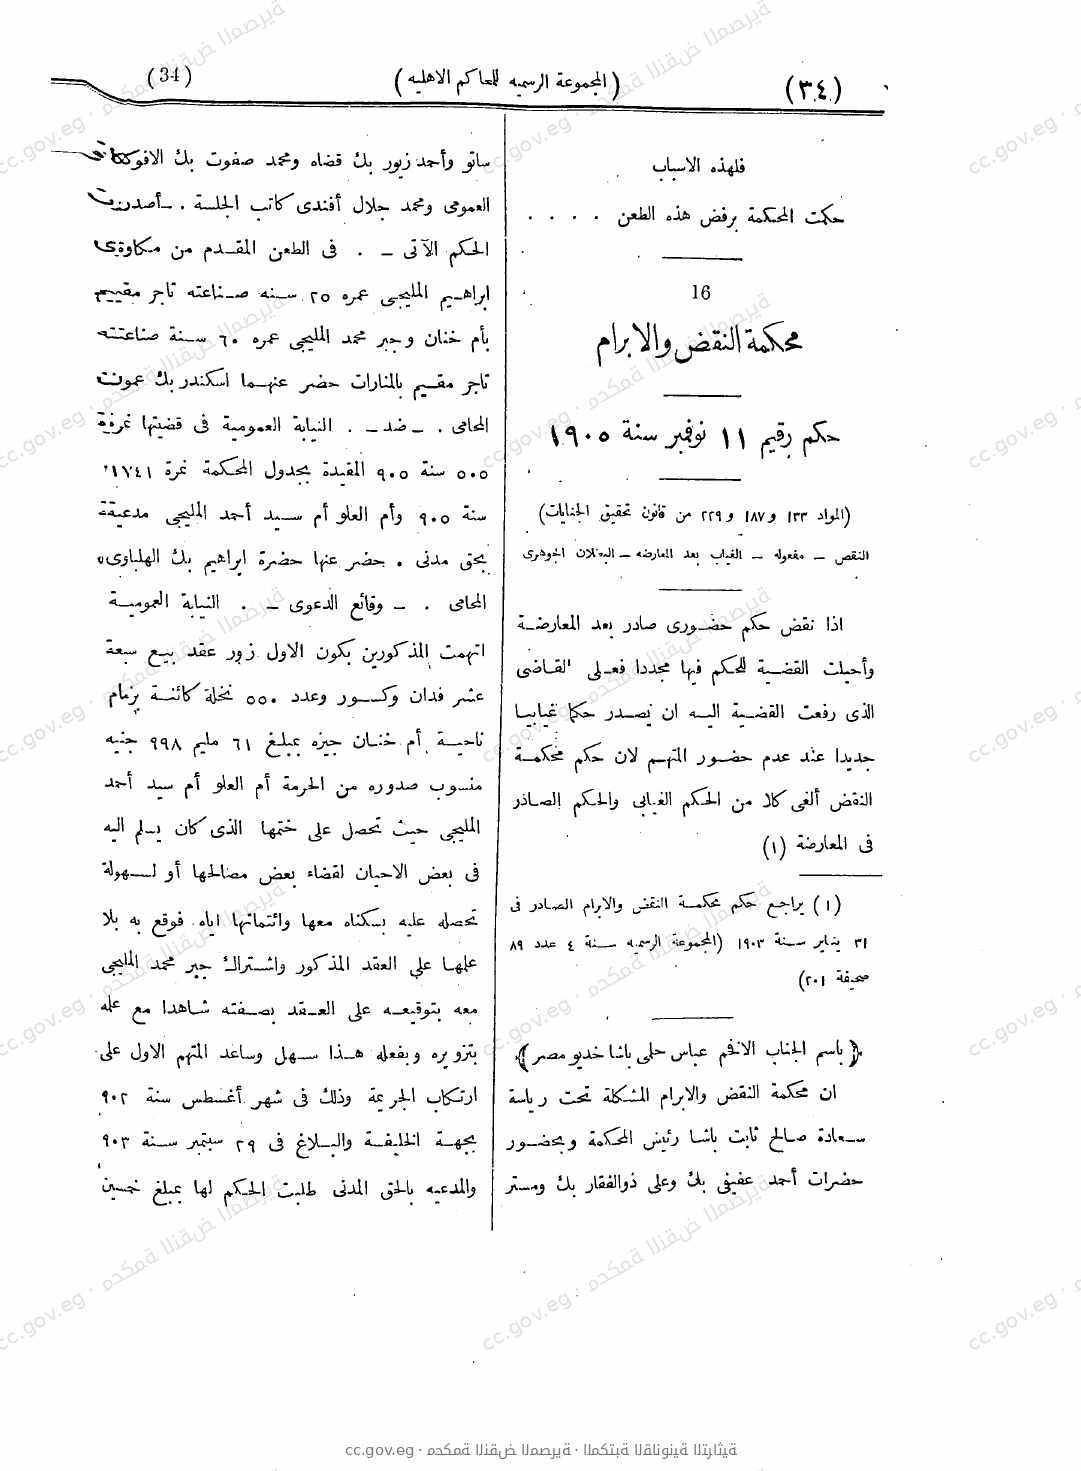 (٣٤)
(المجموعة الرسميه للمحاكم الاهليه)
(34)
فلهذه الاسباب
حكمت المحكمة برفض هذه الطعن . . . .
16
محكمة النقض والابرام
حكم رقيم ١١ نوفمبر سنة ١٩٠٥
(المواد ١٣٣ و١٨٧ و٢٢٩ من قانون تحقيق الجنايات)
النقض – مفعوله – الغياب بعد المعارضه – البطلان الجوهرى
اذا نقض حكم حضورى صادر بعد المعارضة
وأحيلت القضية للحكم فيها مجددا فعلى القاضى
الذى رفعت القضية اليه ان يصدر حكما غيابيا
جديدا عند عدم حضور المتهم لان حكم محكمة
النقض ألغى كلا من الحكم الغيابى والحكم الصادر
فى المعارضة (١)
(١) يراجع حكم محكمة النقض والابرام الصادر فى
٣١ يناير سنة ١٩٠٣ (المجموعة الرسميه سنة ٤ عدد ٨٩
صحيفة ٢٠١)
(باسم الجناب الافخم عباس حلمى باشا خديو مصر)
ان محكمة النقض والابرام المشكلة تحت رياسة
سعادة صالح ثابت باشا رئيس المحكمة وبحضور
حضرات أحمد عفيفى بك وعلى ذوالفقار بك ومستر
ساتو وأحمد زيور بك قضاه ومحمد صفوت بك الافوكاتو
العمومى ومحمد جلال أفندى كاتب الجلسة . – أصدرت
الحكم الآتى – . فى الطعن المقدم من مكاوى
ابراهيم المليجى عمره ٢٥ سنه صناعته تاجر مقيم
بأم خنان وجبر محمد المليجى عمره ٦٠ سنة صناعته
تاجر مقيم بالمنارات حضر عنهما اسكندر بك عمون
المحامى . – ضد – . النيابة العمومية فى قضيتها نمرة
٥٠٥ سنة ٩٠٥ المقيدة بجدول المحكمة نمرة ١٧٤١
سنة ٩٠٥ وأم العلو أم سيد أحمد المليجى مدعية
بحق مدنى . حضر عنها حضرة ابراهيم بك الهلباوى
المحامى . – وقائع الدعوى – . النيابة العمومية
اتهمت المذكورين بكون الاول زور عقد بيع سبعة
عشر فدان وكسور وعدد ٥٥٠ نخلة كائنة بزمام
ناحية أم خنان جيزه بمبلغ ٦١ مليم ٩٩٨ جنيه
منسوب صدوره من الحرمة أم العلو أم سيد أحمد
المليجى حيث تحصل على ختمها الذى كان يسلم اليه
فى بعض الاحيان لقضاء بعض مصالحها أو لسهولة
تحصله عليه بسكناه معها وائتمانها اياه فوقع به بلا
علمها على العقد المذكور واشتراك جبر محمد المليجى
معه بتوقيعه على العقد بصفته شاهدا مع علمه
بتزويره وبفعله هذا سهل وساعد المتهم الاول على
ارتكاب الجريمة وذلك فى شهر أغسطس سنة ٩٠٢
بجهة الخليفة والبلاغ فى ٢٩ سبتمبر سنة ٩٠٣
والمدعيه بالحق المدنى طلبت الحكم لها بمبلغ خمسين
cc.gov.eg · محكمة النقض المصرية · المكتبة القانونية التراثية